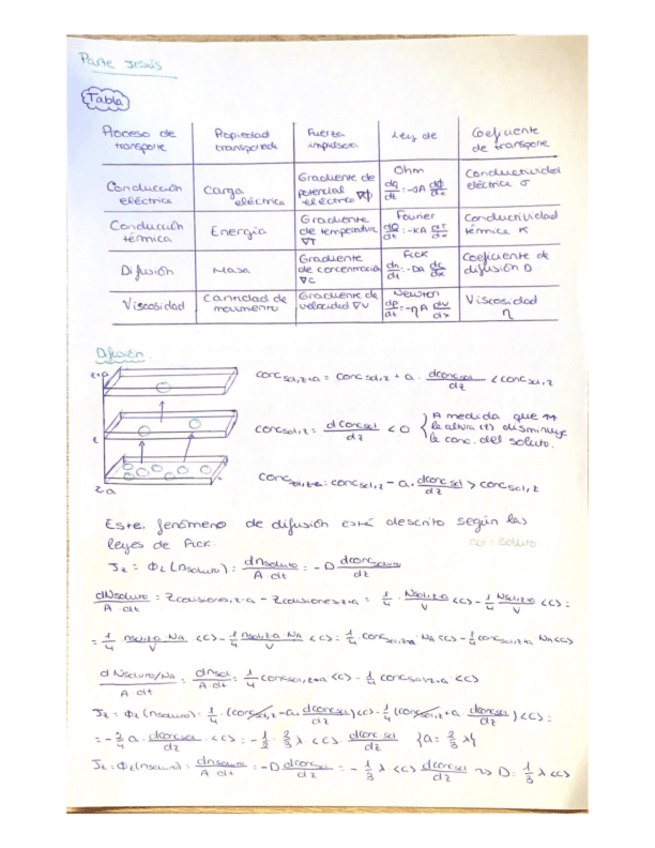 Parte Jesús
Tabla
Proceso de transporte | Propiedad transportada | Fuerza impulsora | Ley de | Coeficiente de transporte
Conducción eléctrica | Carga eléctrica | Gradiente de potencial eléctrico ∇ϕ | Ohm dq/dt = -σA dϕ/dx | Conductividad eléctrica σ
Conducción térmica | Energía | Gradiente de temperatura ∇T | Fourier dQ/dt = -KA dT/dx | Conductividad térmica K
Difusión | Masa | Gradiente de concentración ∇c | Fick dn/dt = -DA dc/dx | Coeficiente de difusión D
Viscosidad | Cantidad de movimiento | Gradiente de velocidad ∇v | Newton dp/dt = -ηA dv/dx | Viscosidad η
Difusión
z+a
conc sol,z+a = conc sol,z + a · dconc sol/dz < conc sol,z
z
conc sol,z = dconc sol/dz < 0 { A medida que ↑↑ la altura (z) disminuye la conc. del soluto.
z-a
conc sol,z-a = conc sol,z - a · dconc sol/dz > conc sol,z
Este fenómeno de difusión está descrito según las
leyes de Fick.
sol = soluto
Jz = Φz (nsoluto) = dnsoluto/A·dt = -D dconc soluto/dz
dNsoluto/A·dt = Zcolisiones,z-a - Zcolisiones,z+a = 1/4 · Nsol,z-a/V <c> - 1/4 Nsol,z+a/V <c> =
= 1/4 nsol,z-a·NA/V <c> - 1/4 nsol,z+a·NA/V <c> = 1/4 · conc sol,z-a NA <c> - 1/4 conc sol,z+a NA <c>
dNsoluto/NA/A·dt = dnsol/A·dt = 1/4 conc sol,z-a <c> - 1/4 conc sol,z+a · <c>
Jz = Φz (nsoluto) = 1/4 · (conc sol,z - a · dconc sol/dz) <c> - 1/4 (conc sol,z + a · dconc sol/dz) <c> =
= -2/4 a · dconc sol/dz · <c> = -1/2 · 2/3 λ · <c> · dconc sol/dz {a = 2/3 λ}
Jz = Φz (nsoluto) = dnsoluto/A·dt = -D dconc sol/dz = -1/3 λ <c> dconc sol/dz ⇝ D = 1/3 λ <c>